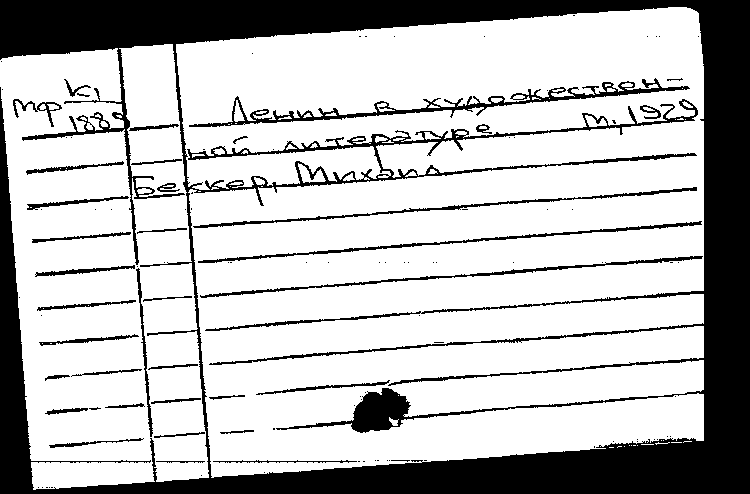 Мф К1
1889
Ленин в художествен-
ной литературе. М, 1929.
Беккер, Михаил